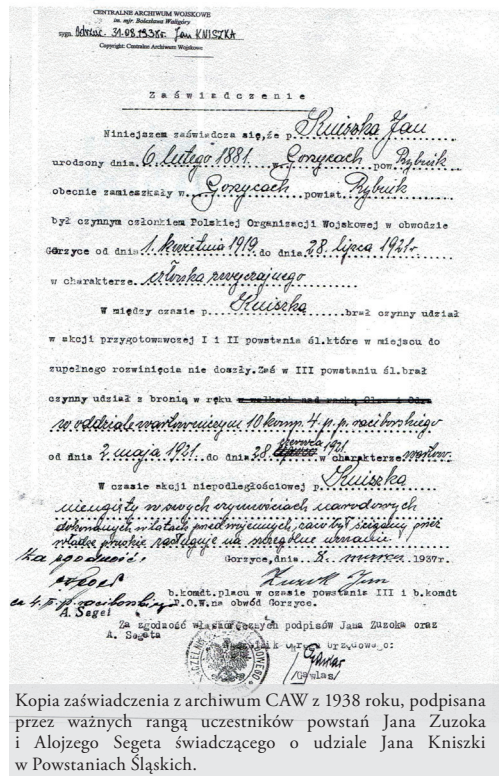 CENTRALNE ARCHIWUM WOJSKOWE
im. mjr. Bolesława Waligóry
sygn. Odrzuc. 31.08.1938r. Jan KNISZKA
Copyright: Centralne Archiwum Wojskowe
Zaświadczenie
Niniejszem zaświadcza się, że p. Kniszka Jan
urodzony dnia 6 lutego 1881. w Gorzycach pow. Rybnik
obecnie zamieszkały w Gorzycach powiat Rybnik
był czynnym członkiem Polskiej Organizacji Wojskowej w obwodzie
Gorzyce od dnia 1. kwietnia 1919 do dnia 28 lipca 1921r
w charakterze członka zwyczajnego
W między czasie p. Kniszka brał czynny udział
w akcji przygotowawczej I i II powstania śl. które w miejscu do
zupełnego rozwinięcia nie doszły. Zaś w III powstaniu śl. brał
czynny udział z bronią w ręku w walkach nad rzeką
w oddziale wartowniczym 10 komp. 4. p. p. raciborskiego
od dnia 2 maja 1921. do dnia 28 czerwca 1921. w charakterze wartow.
W czasie akcji niepodległościowej p. Kniszka
nieugięty w swych czynnościach narodowych
dokonanych w latach przedwojennych, zaco był ścigany przez
władze pruskie zasługuje na szczególne uznanie
Za zgodność: Gorzyce, dnia 8. marca 1937r.
Zuzok Jan
b. komdt. placu w czasie powstania III i b. komdt
4. p. p. raciborskiego P.O.W. na obwód Gorzyce.
A. Seget
Za zgodność własnoręcznych podpisów Jana Zuzoka oraz
A. Segeta
Naczelnik okręgu urzędowego:
/Gawlas/
Kopia zaświadczenia z archiwum CAW z 1938 roku, podpisana
przez ważnych rangą uczestników powstań Jana Zuzoka
i Alojzego Segeta świadczącego o udziale Jana Kniszki
w Powstaniach Śląskich.